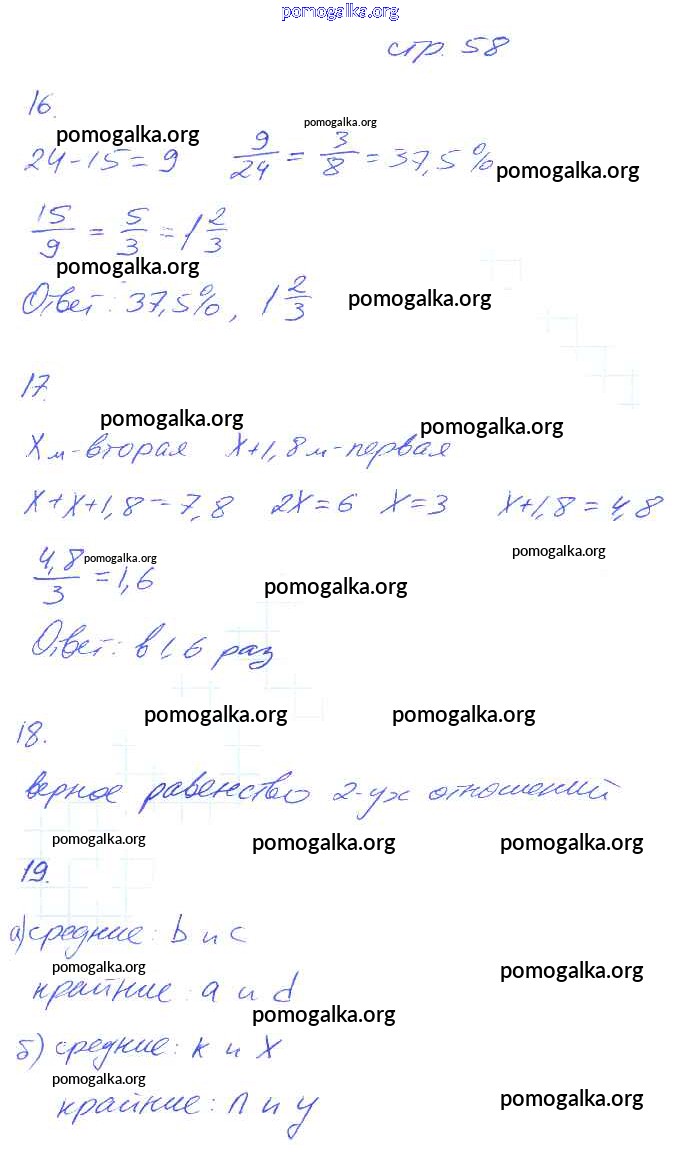 pomogalka.org
стр. 58
16.
pomogalka.org pomogalka.org
24-15=9 9/24 = 3/8 = 37,5% pomogalka.org
15/9 = 5/3 = 1 2/3
pomogalka.org
Ответ: 37,5%, 1 2/3 pomogalka.org
17.
pomogalka.org pomogalka.org
Xм-вторая X+1,8м-первая
X+X+1,8=7,8 2X=6 X=3 X+1,8=4,8
pomogalka.org
4,8/3 = 1,6 pomogalka.org pomogalka.org
Ответ: в 1,6 раз
pomogalka.org pomogalka.org
18.
верное равенство 2-ух отношений
pomogalka.org pomogalka.org pomogalka.org
19.
а) средние: b и c
pomogalka.org pomogalka.org
крайние: a и d
pomogalka.org
б) средние: к и X
pomogalka.org
крайние: п и y pomogalka.org